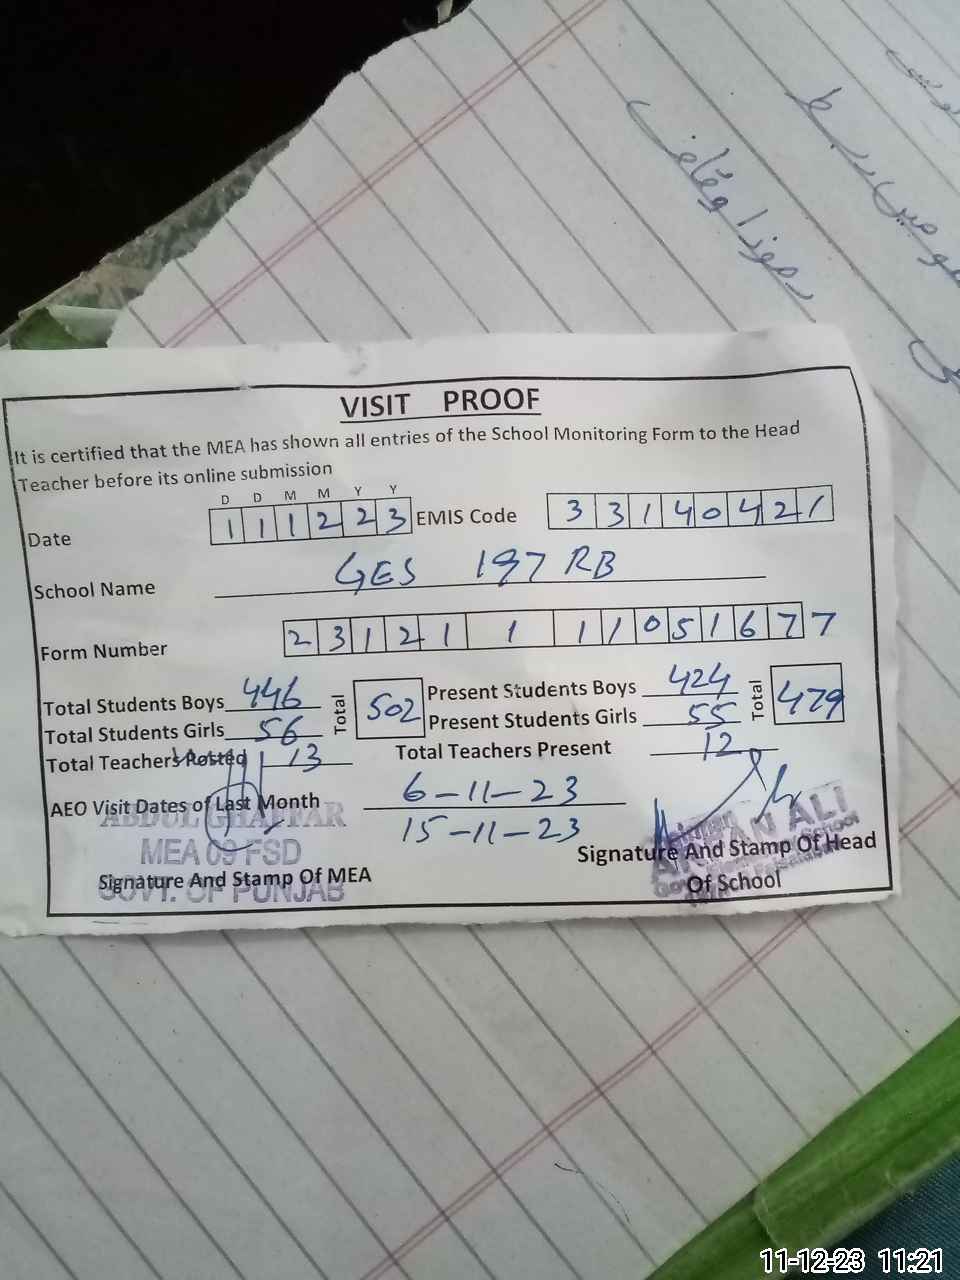 رموز اوقاف
میں ربط
VISIT PROOF
It is certified that the MEA has shown all entries of the School Monitoring Form to the Head
Teacher before its online submission
D D M M Y Y
Date 1 1 1 2 2 3 EMIS Code 3 3 1 4 0 4 2 1
School Name GES 197 RB
Form Number 2 3 1 2 1 1 1 1 0 5 1 6 7 7
Total Students Boys 446 Total 502 Present Students Boys 424 Total 479
Total Students Girls 56 Present Students Girls 55
Total Teachers Posted 13 Total Teachers Present 12
AEO Visit Dates of Last Month 6-11-23
15-11-23
ABDUL GHAFFAR
MEA 09 FSD
GOVT. OF PUNJAB
Signature And Stamp Of MEA
Signature And Stamp Of Head
Of School
11-12-23 11:21